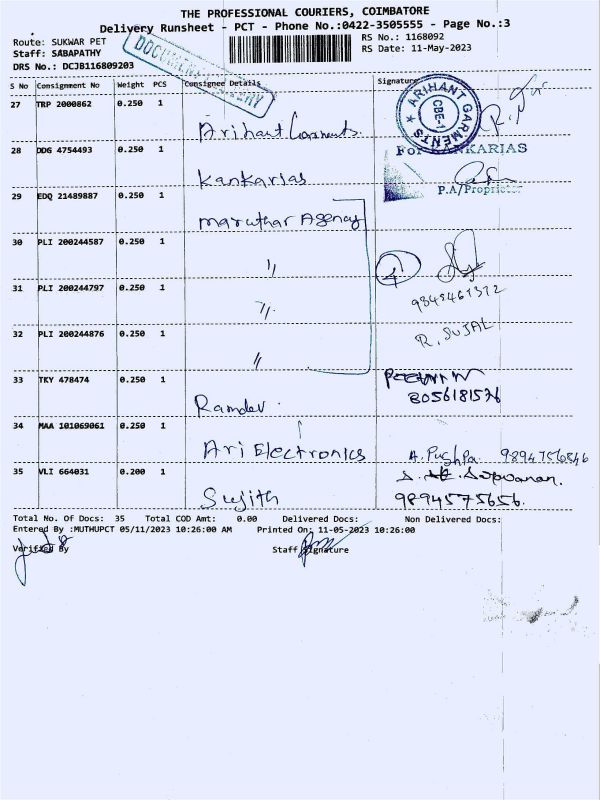 THE PROFESSIONAL COURIERS, COIMBATORE
Delivery Runsheet - PCT - Phone No.:0422-3505555 - Page No.:3
Route: SUKWAR PET
RS No.: 1168092
Staff: SABAPATHY
RS Date: 11-May-2023
DRS No.: DCJB116809203
S No Consignment No Weight PCS Consignee Details Signature
27 TRP 2000862 0.250 1 Arihant Garments
ARIHANT GARMENTS
CBE-1
28 DDG 4754493 0.250 1 Kankarias
For KANKARIAS
P.A/Proprietor
29 EDQ 21489887 0.250 1 Maruthar Agency
30 PLI 200244587 0.250 1 "
4
31 PLI 200244797 0.250 1 "
32 PLI 200244876 0.250 1 "
R. SUJAL
33 TKY 478474 0.250 1 Ramdev
34 MAA 101069061 0.250 1 Ari Electronics
A. Pushpa
35 VLI 664031 0.200 1 Sujith
9894575656
Total No. Of Docs: 35 Total COD Amt: 0.00 Delivered Docs: Non Delivered Docs:
Entered By :MUTHUPCT 05/11/2023 10:26:00 AM Printed On: 11-05-2023 10:26:00
Verified By Staff Signature